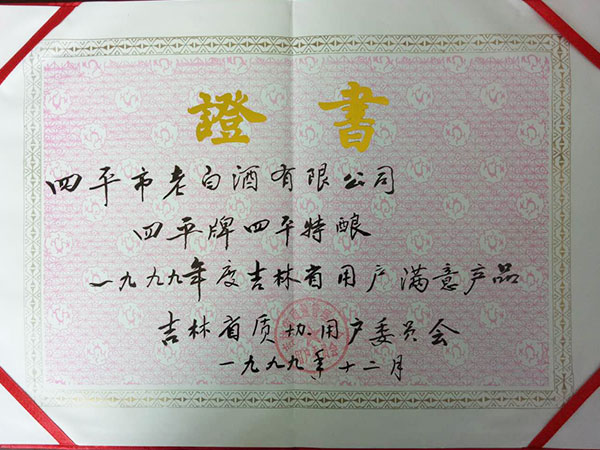 證書
四平市老白酒有限公司
四平牌四平特酿
一九九九年度吉林省用户满意产品
吉林省质协用户委员会
一九九九年十二月